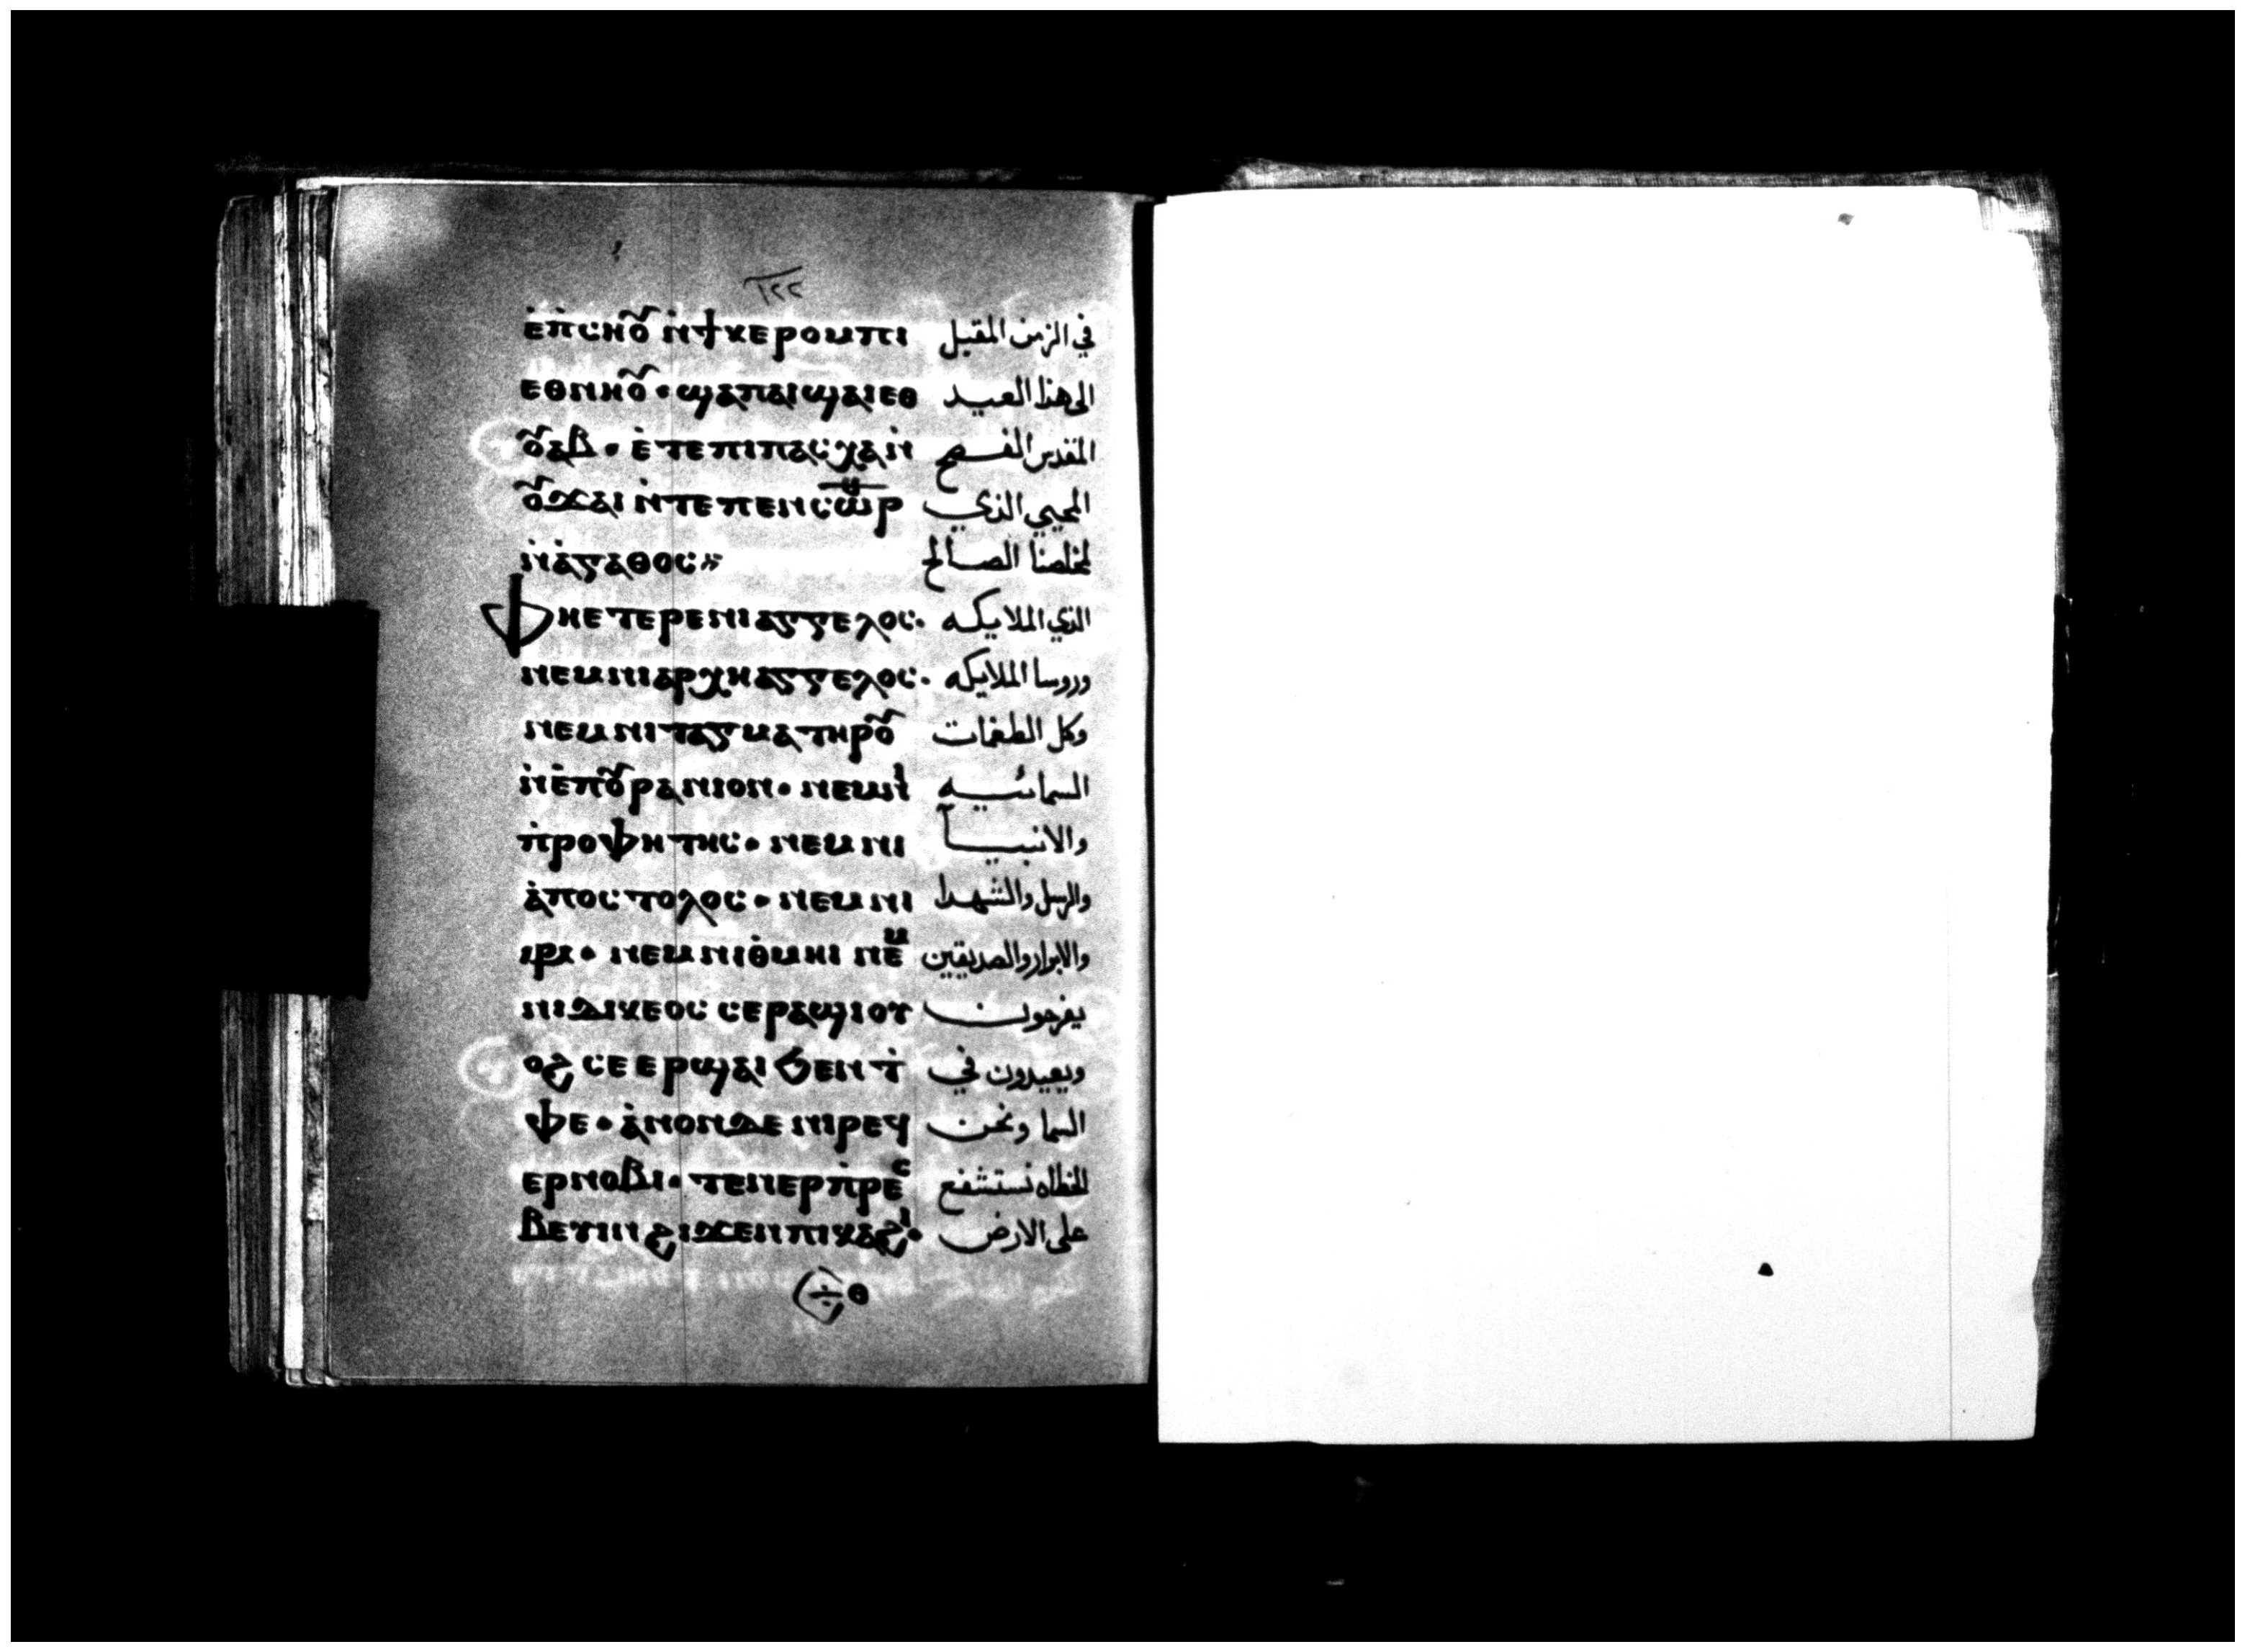 ⲉ̇ⲡ̇ⲥⲏⲟ̃ ⲛ̇ϯⲕⲉⲣⲟⲙⲡⲓ في الزمن المقبل
ⲉⲑⲛⲏⲟ̃ · ϣⲁⲡⲁⲓϣⲁⲓⲉⲑ الى هذا العيد
ⲟ̃ⲁⲃ · ⲉ̇ⲧⲉⲡⲓⲡⲁⲥⲭⲁⲛ̇ المقدس الفصح
ⲟ̃ϫⲁⲓ ⲛ̇ⲧⲉⲡⲉⲛⲥⲱ̅ⲣ̅ المحيي الذي
ⲛ̇ⲁ̇ⲅⲁⲑⲟⲥ لمخلصنا الصالح
ⲫⲏⲉⲧⲉⲣⲉⲛⲓⲁⲅⲅⲉⲗⲟⲥ · الذي الملايكه
ⲛⲉⲙⲛⲓⲁⲣⲭⲏⲁⲅⲅⲉⲗⲟⲥ · وروسا الملايكه
ⲛⲉⲙⲛⲓⲧⲁⲅⲙⲁⲧⲏⲣⲟ̃ وكل الطغمات
ⲛ̇ⲉ̇ⲡⲟ̃ⲣⲁⲛⲓⲟⲛ · ⲛⲉⲙⲛⲓ السمائيه
ⲡ̇ⲣⲟⲫⲏⲧⲏⲥ · ⲛⲉⲙⲛⲓ والانبيآ
ⲁ̇ⲡⲟⲥⲧⲟⲗⲟⲥ · ⲛⲉⲙⲛⲓ والرسل والشهدا
· ⲛⲉⲙⲛⲓⲑ̇ⲙⲏⲓ ⲛⲉⲙ والابرار والصديقين
ⲛⲓⲇⲓⲕⲉⲟⲥ ⲥⲉⲣⲁϣⲓⲟⲩ يفرحون
ⲟϩ ⲥⲉⲉⲣϣⲁⲓ ϧⲉⲛⲧ̇ ويعيدون في
ⲫⲉ · ⲁ̇ⲛⲟⲛⲇⲉ ⲛⲓⲣⲉϥ السما ونحن
ⲉⲣⲛⲟⲃⲓ · ⲧⲉⲛⲉⲣⲡ̇ⲣⲉⲥ الخطاه نستشفع
ⲃⲉⲩⲓⲛ ϩⲓϫⲉⲛⲡⲓⲕⲁϩⲓ · على الارض